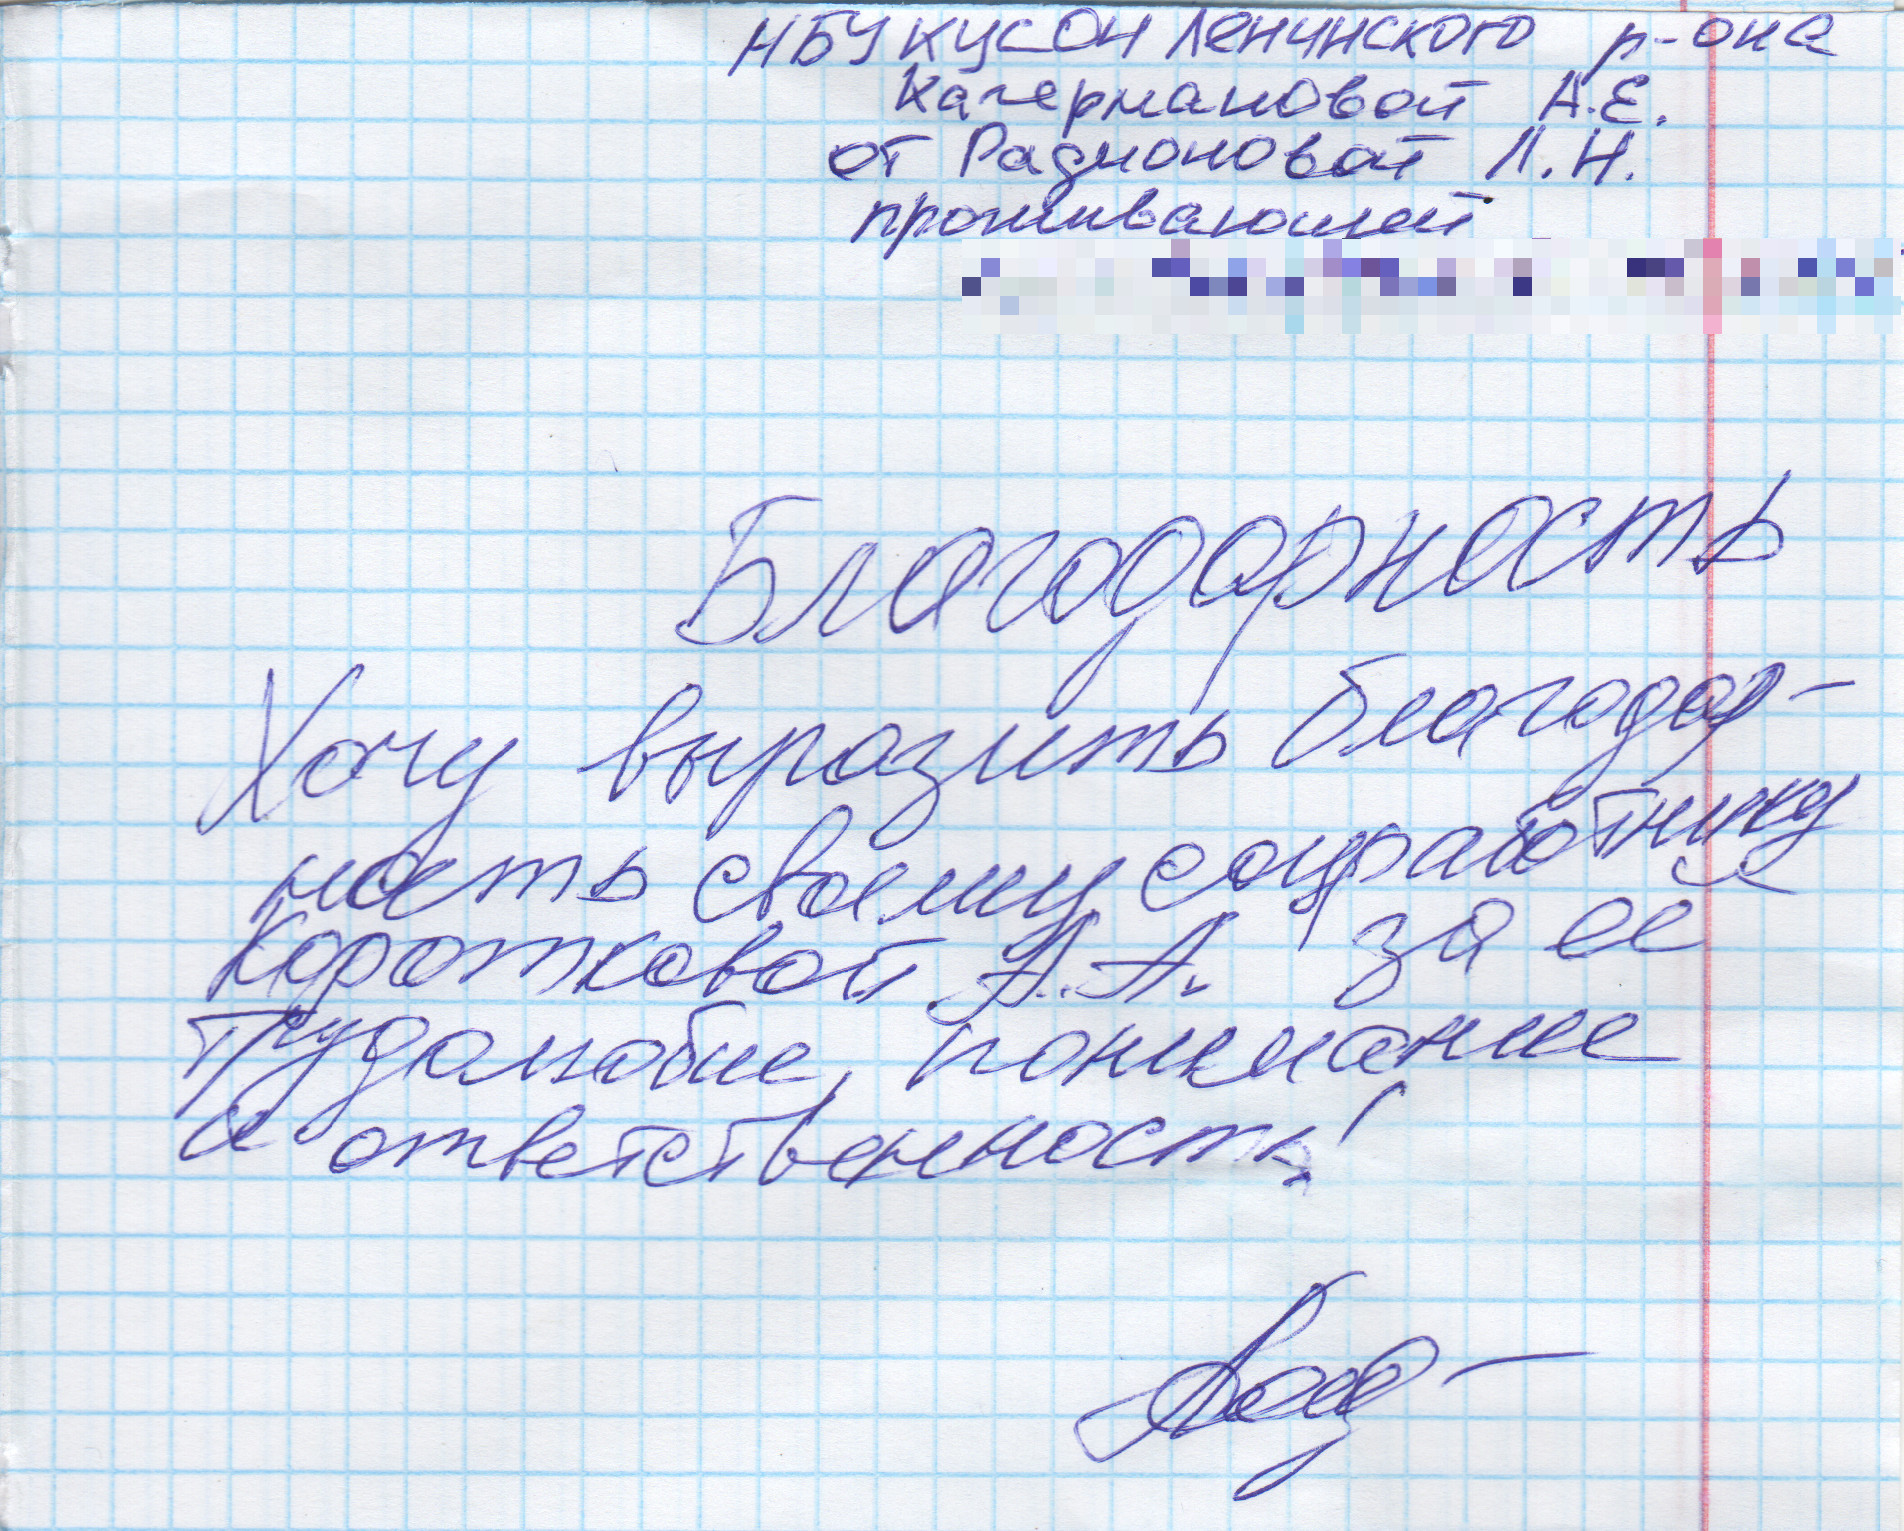 НБУ КУСОН Ленинского р-она
Кагермановой А.Е.
от Радионовой Л.Н.
проживающей
Благодарность
Хочу выразить благодар-
ность своему соцработнику
Коротковой А.А. за ее
трудолюбие, понимание
и ответственность!